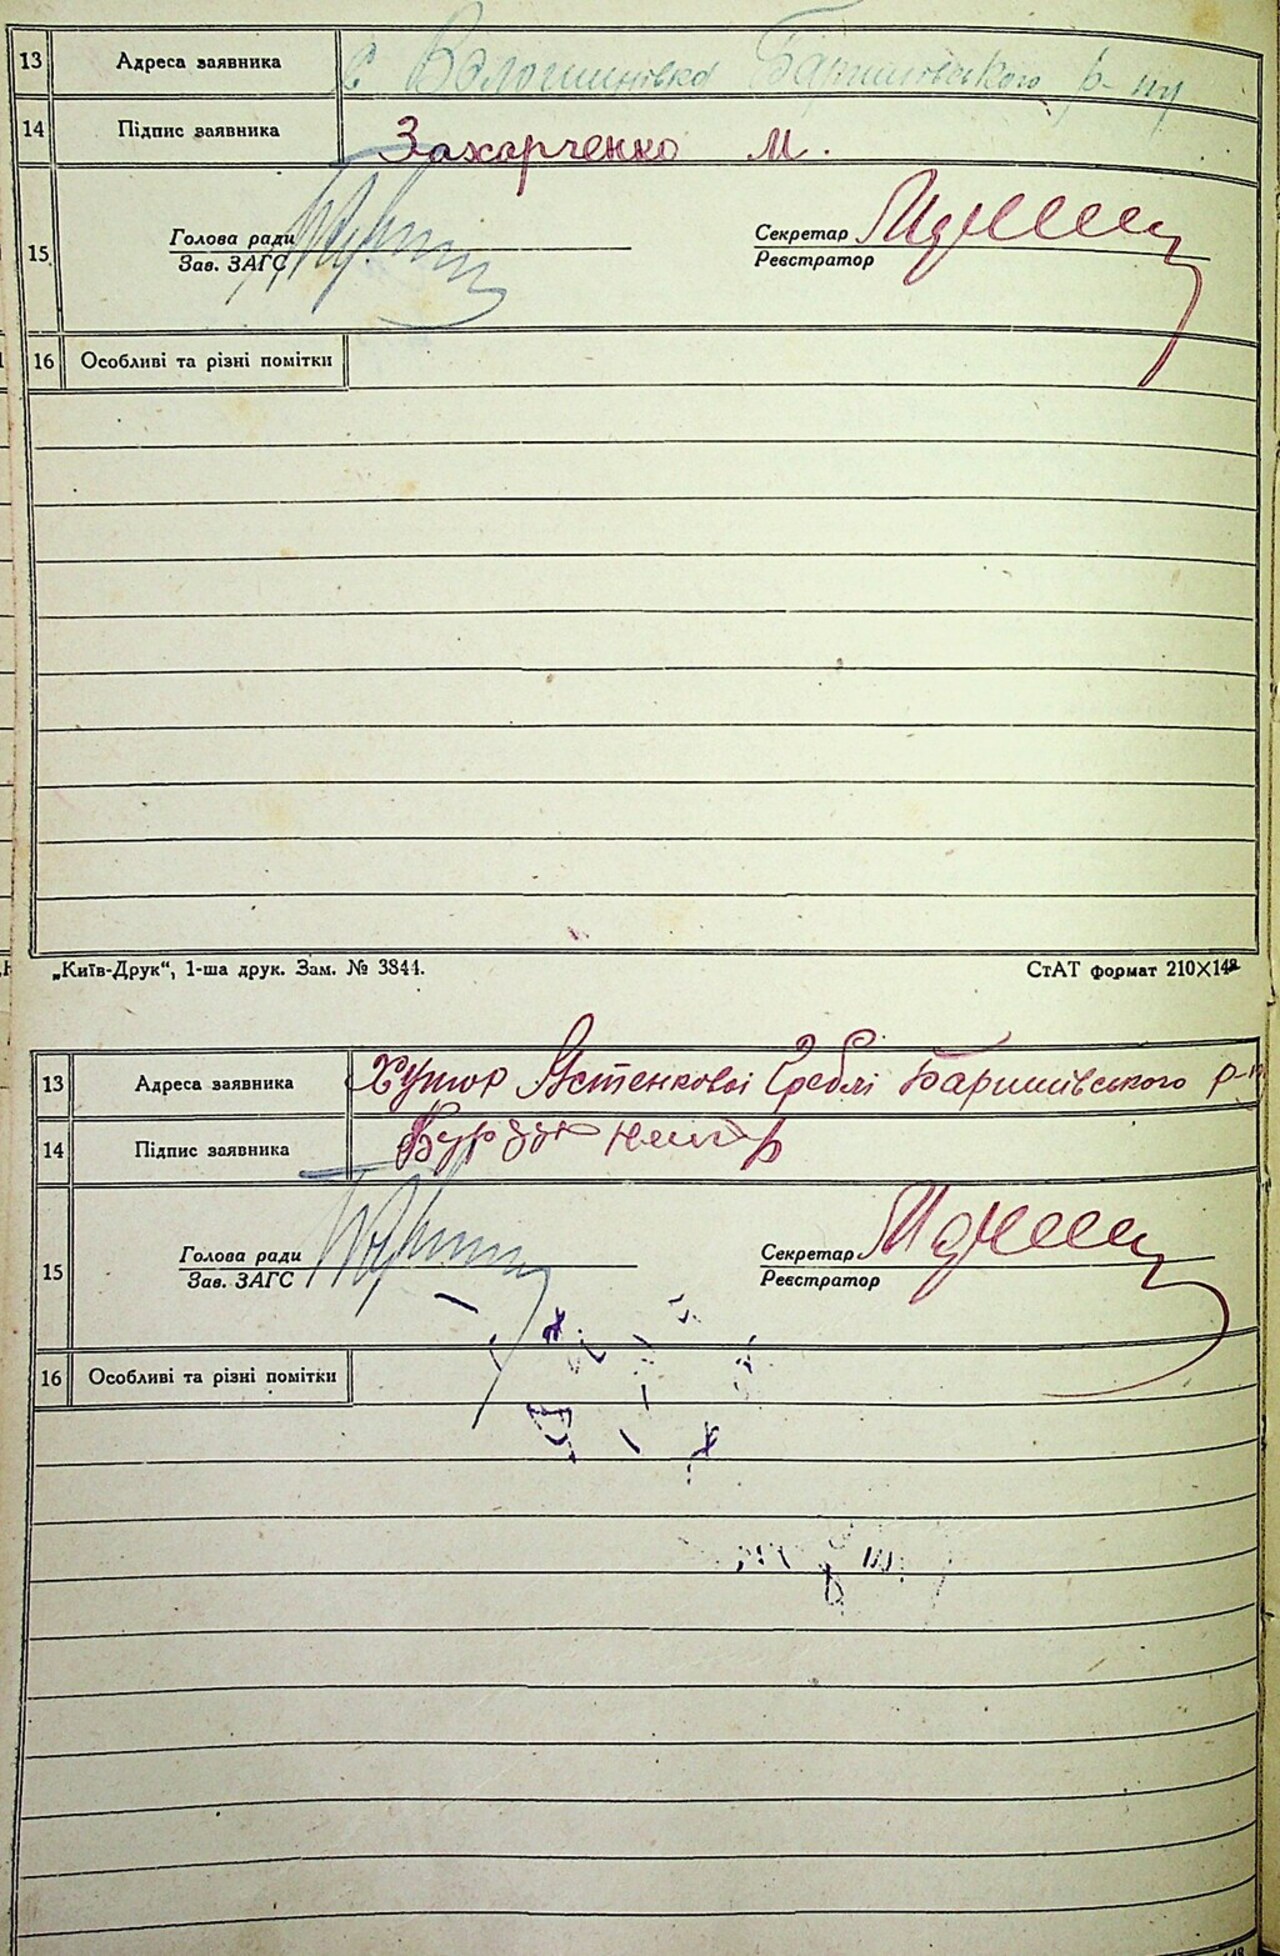 13 Адреса заявника с Волошинівка Баришівського р-ну
14 Підпис заявника Захарченко М.
15 Голова ради Секретар
Зав. ЗАГС Реєстратор
16 Особливі та різні помітки
„Київ-Друк“, 1-ша друк. Зам. № 3844. СтАТ формат 210×148
13 Адреса заявника Хутор Баришівського р-н
14 Підпис заявника
15 Голова ради Секретар
Зав. ЗАГС Реєстратор
16 Особливі та різні помітки